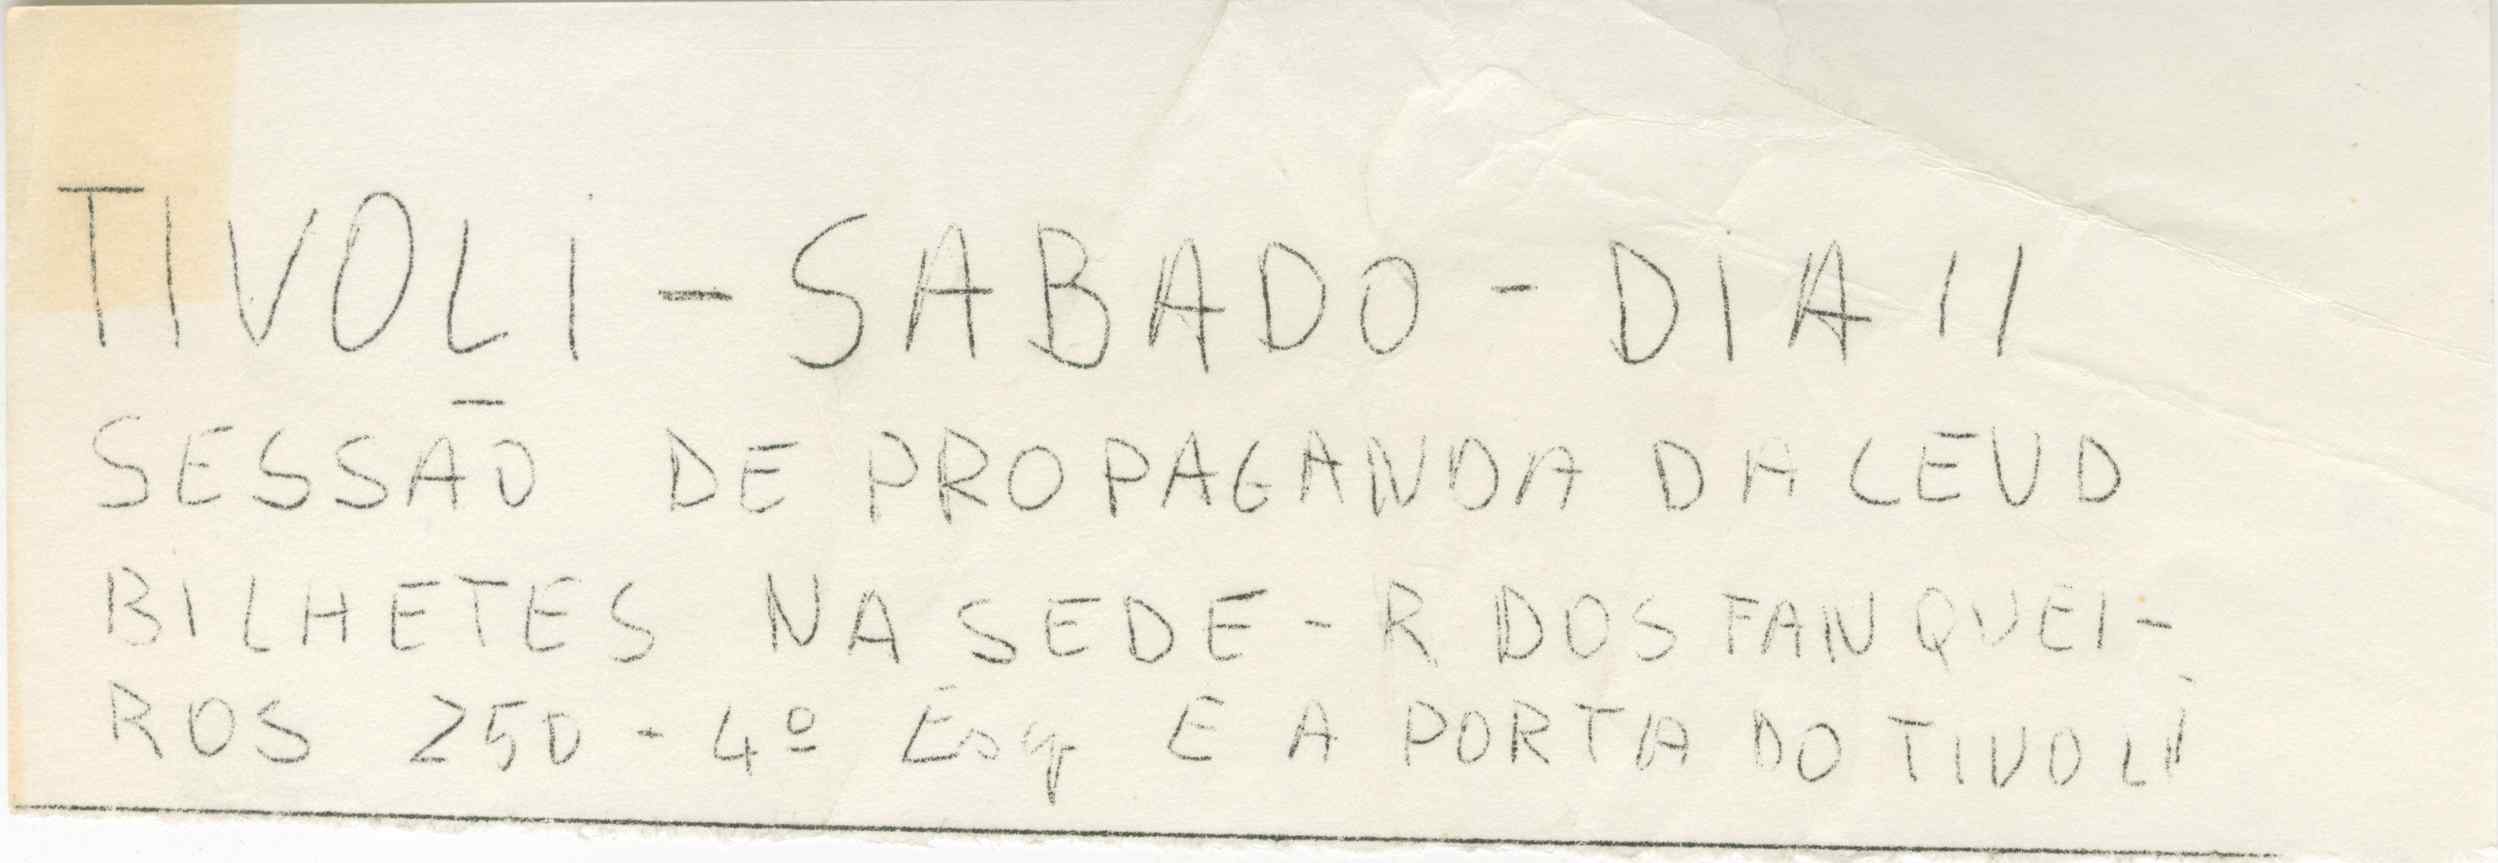 TIVOLI - SABADO - DIA 11
SESSÃO DE PROPAGANDA DA CEUD
BILHETES NA SEDE - R DOS FANQUEI-
ROS 250 - 4º Esq E A PORTA DO TIVOLI